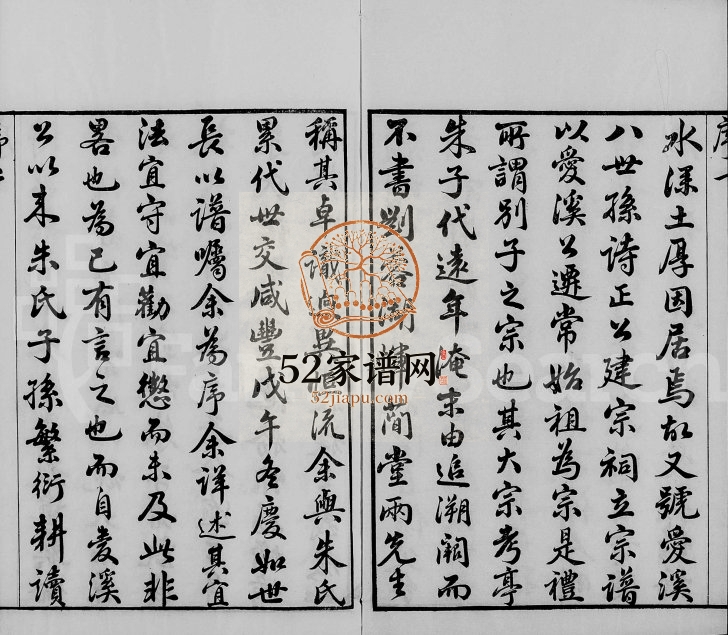 序一
水深土厚因居焉故又號愛溪
八世孫詩正公建宗祠立宗譜
以愛溪公遷常始祖為宗是禮
所謂別子之宗也其大宗考亭
朱子代遠年淹末由追溯闕而
不書劉蓉湖輝蘭堂兩先生
稱其卓識迥異恒流余與朱氏
累代世交咸豐戊午冬慶如世
長以譜囑余為序余詳述其宜
法宜守宜勸宜懲而未及此非
畧也為已有言之也而自愛溪
公以來朱氏子孫繁衍耕讀
52家谱网
52jiapu.com
FamilySearch